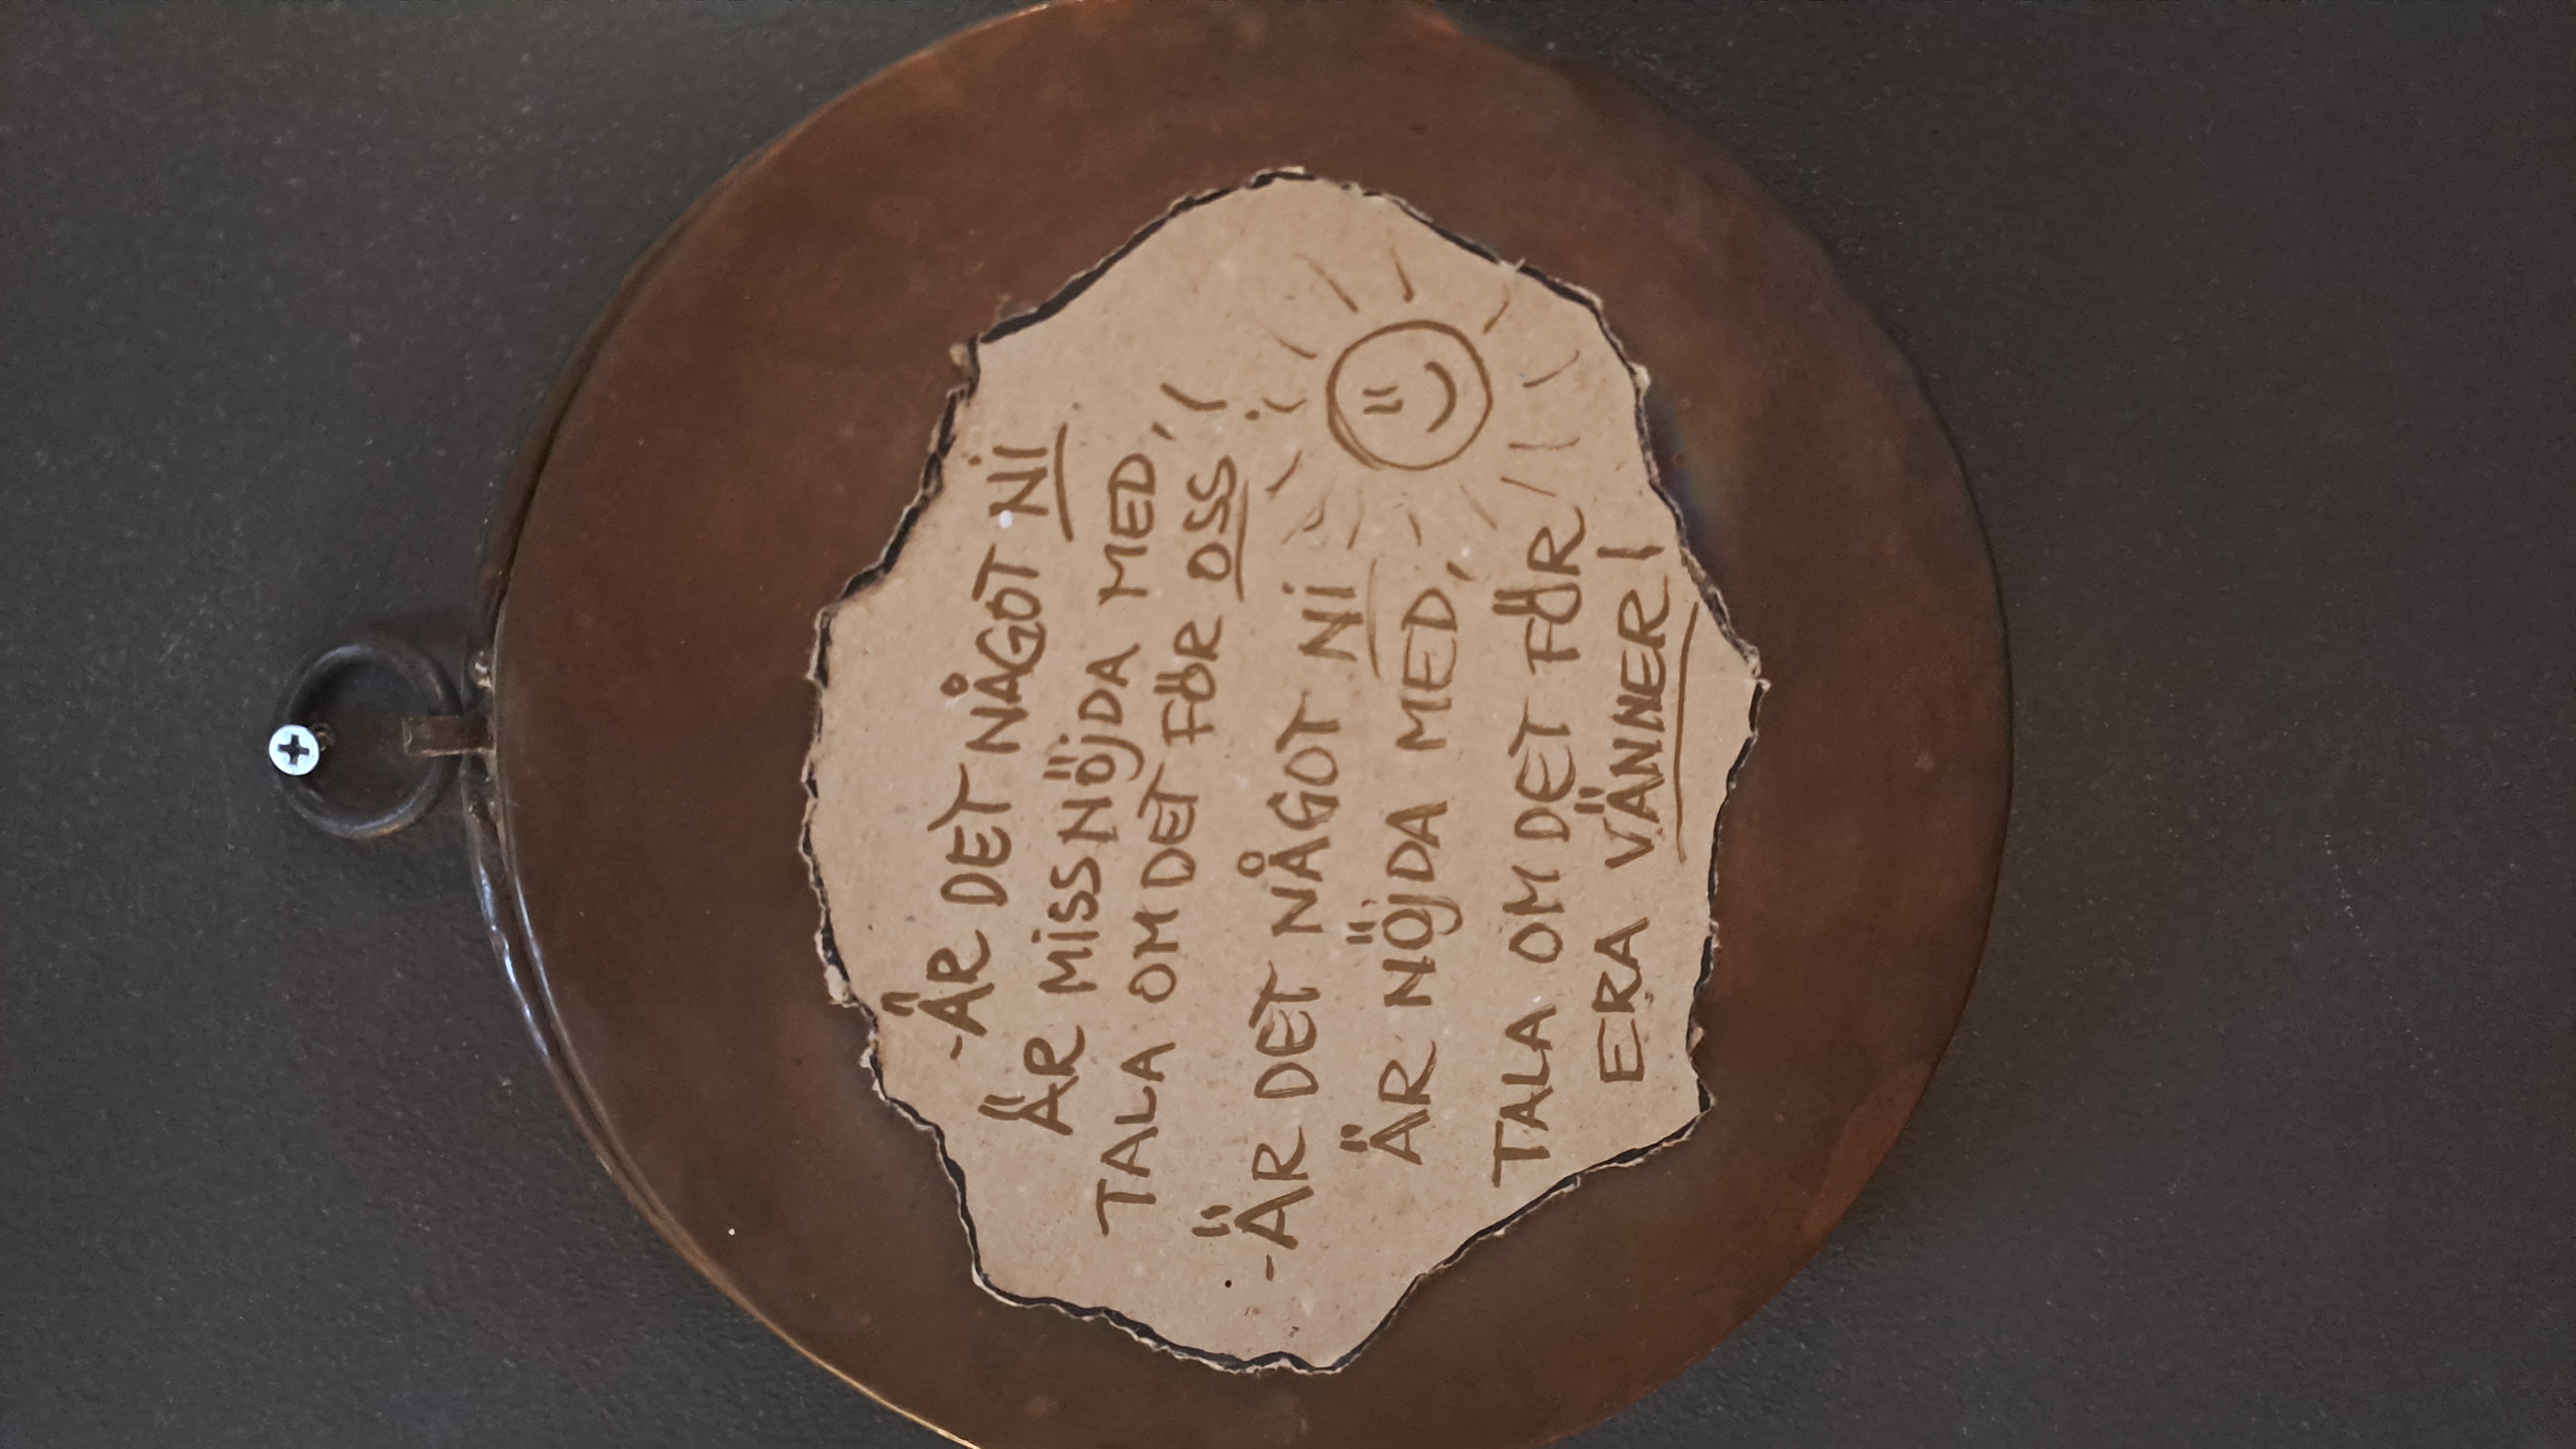 -ÄR DET NÅGOT NI
ÄR MISSNÖJDA MED,
TALA OM DET FÖR OSS!
-ÄR DET NÅGOT NI
ÄR NÖJDA MED,
TALA OM DET FÖR
ERA VÄNNER!